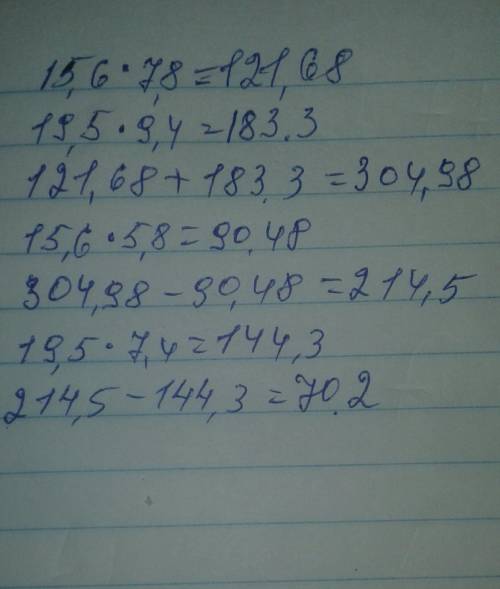 15,6·7,8=121,68
19,5·9,4=183.3
121,68+183.3=304,98
15,6·5,8=90.48
304,98-90,48=214,5
19,5·7,4=144,3
214,5-144,3=70.2